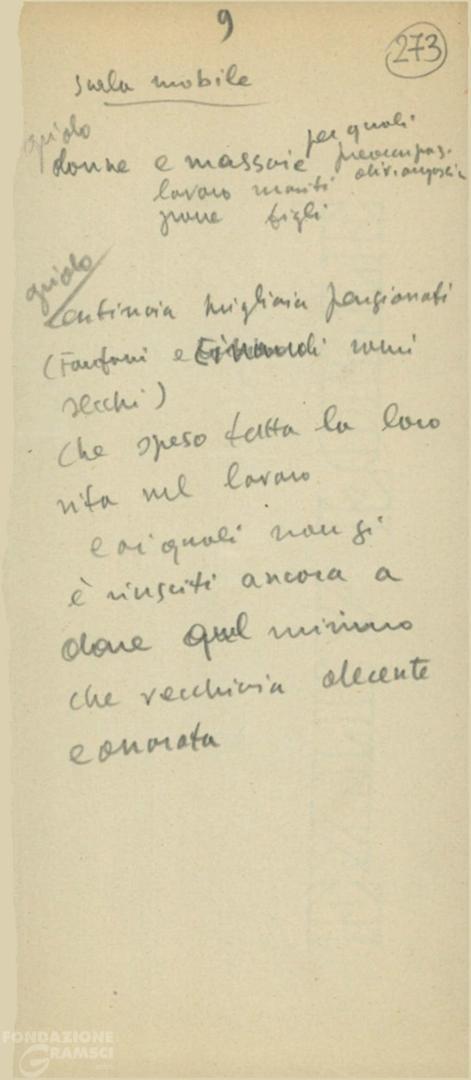 9
273
scala mobile
grido
donne e massaie per quali
preoccupaz.
lavoro mariti
figli
grido
centinaia migliaia pensionati
(Fanfani e rami
secchi)
che speso tutta la loro
vita nel lavoro
e ai quali non si
è riusciti ancora a
dare quel minimo
che vecchiaia decente
e onorata
FONDAZIONE
GRAMSCI